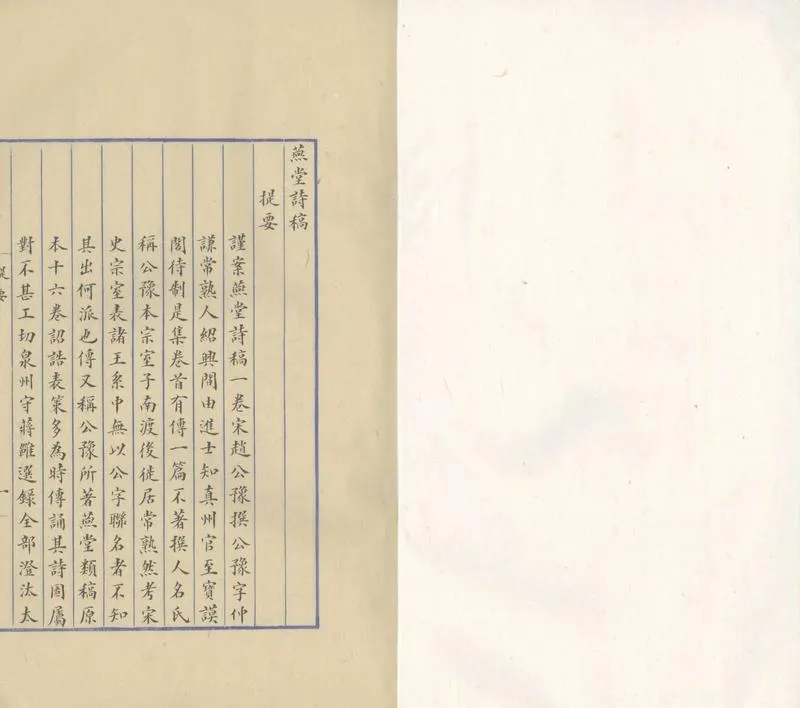 燕堂詩稿
提要
謹案燕堂詩稿一卷宋趙公豫撰公豫字仲
謙常熟人紹興間由進士知真州官至寶謨
閣待制是集卷首有傳一篇不著撰人名氏
稱公豫本宗室子南渡後徙居常熟然考宋
史宗室表諸王系中無以公字聯名者不知
其出何派也傳又稱公豫所著燕堂類稿原
本十六卷詔誥表策多為時傳誦其詩固屬
對不甚工切泉州守蔣雝選錄全部澄汰太
提要
一